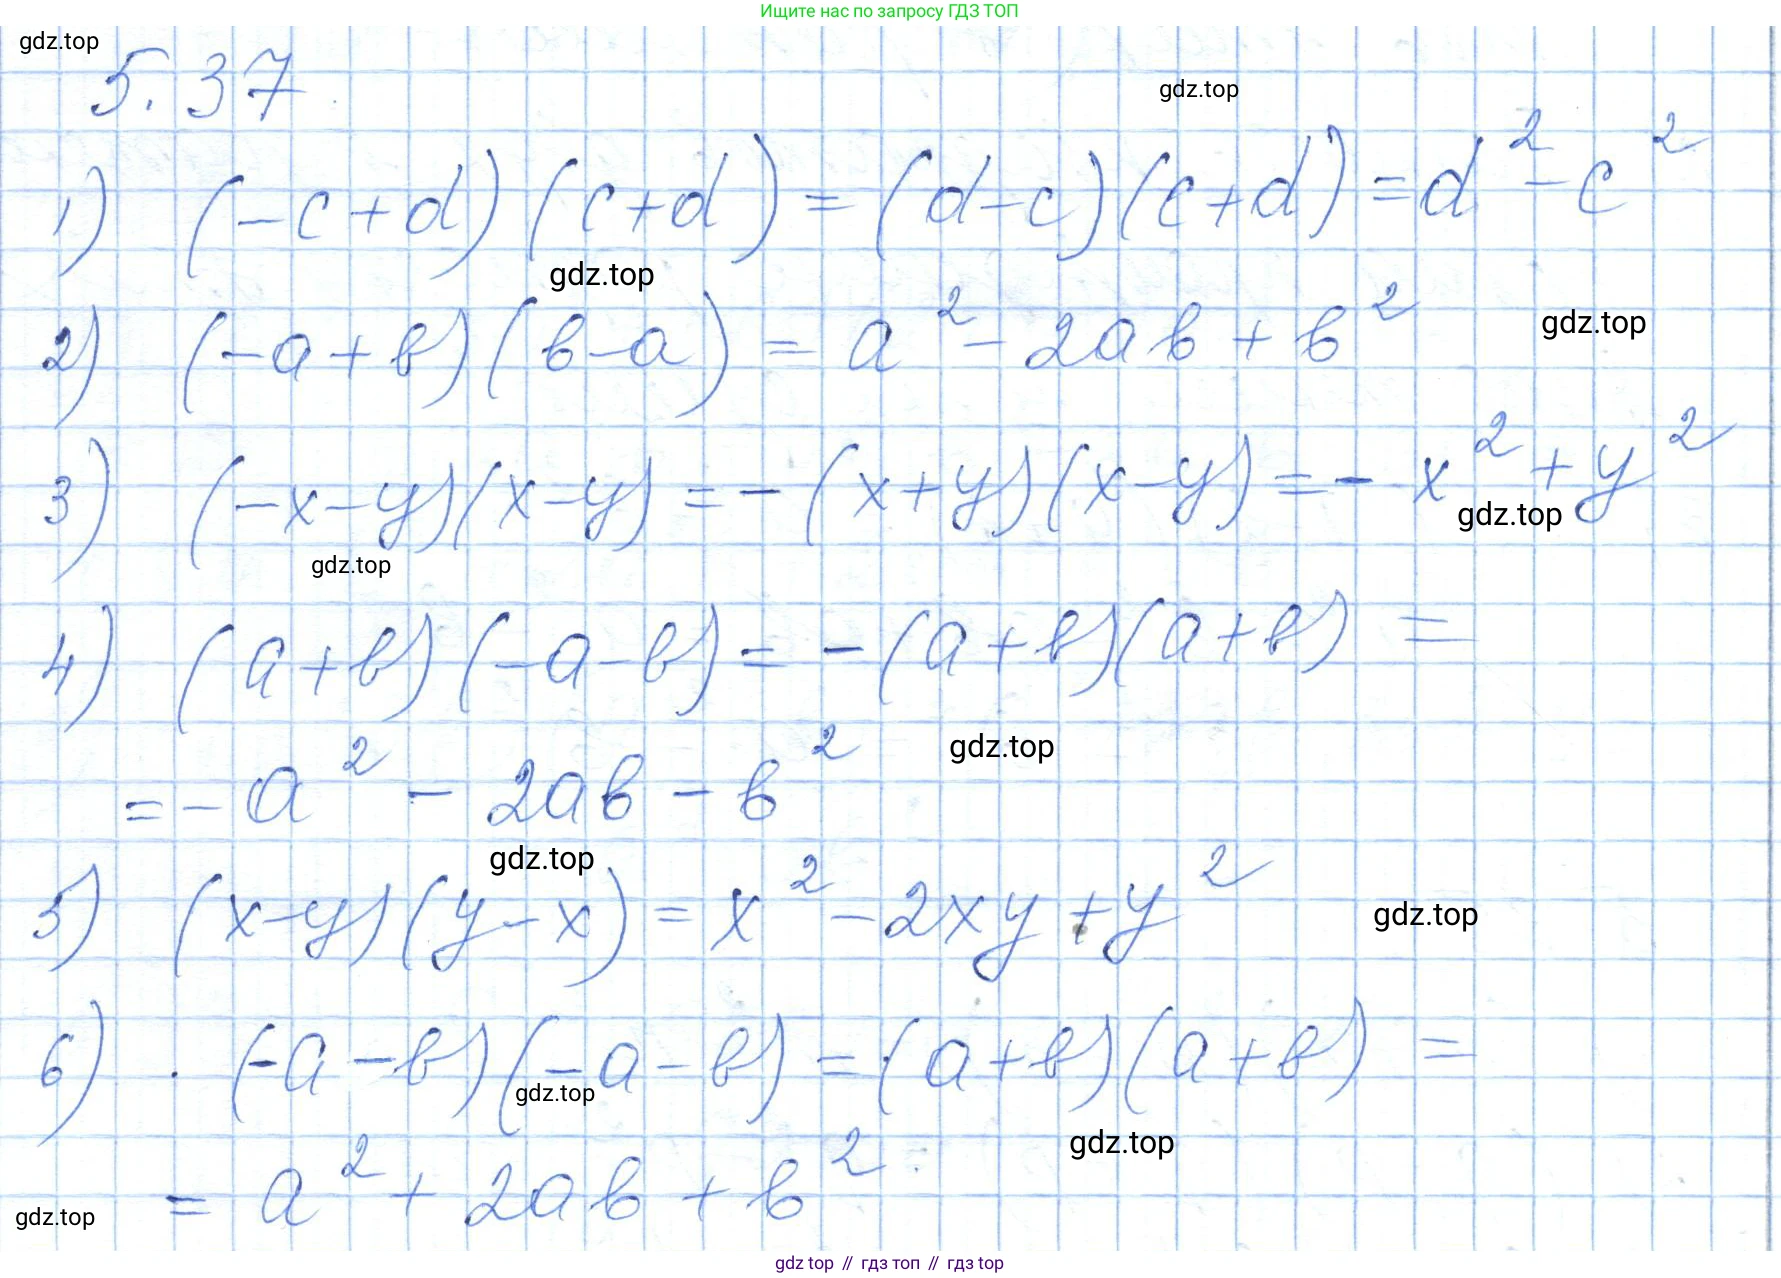 Ищите нас по запросу ГДЗ ТОП
gdz.top
5.37
gdz.top
1) (-c+d)(c+d)=(d-c)(c+d)=d²-c²
gdz.top
2) (-a+b)(b-a)=a²-2ab+b²
gdz.top
3) (-x-y)(x-y)=-(x+y)(x-y)=-x²+y²
gdz.top
gdz.top
4) (a+b)(-a-b)=-(a+b)(a+b)=
gdz.top
=-a²-2ab-b²
gdz.top
5) (x-y)(y-x)=x²-2xy+y²
gdz.top
6) (-a-b)(-a-b)=(a+b)(a+b)=
gdz.top
gdz.top
=a²+2ab+b²
gdz.top
gdz top // гдз топ // гдз top